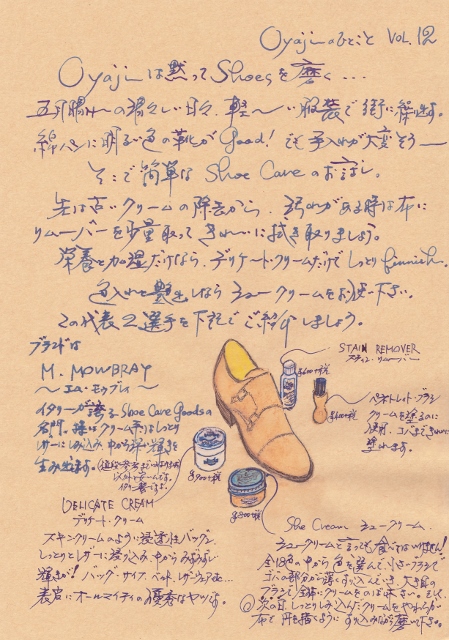 Oyajiのひとこと VOL.12
Oyajiは黙ってShoesを磨く…
五月晴れの清々しい日々、軽〜い服装で街に繰り出す。
綿パンに明るい色の靴がGood! でも手入れが大変そう—
そこで簡単なShoe Careのお話し。
先ずは古いクリームの除去から、汚れがある時は布に
リムーバーを少量取ってきれいに拭き取りましょう。
栄養と加湿だけなら、デリケートクリームだけでしっとりfinnish.
色入れと艶出しなら シュークリームをお使い下さい。
この代表2選手を下記でご紹介しましょう。
ブランドは
M. MOWBRAY
〜エム・モゥブレィ〜
イタリーが誇るShoe Care Goodsの
名門。
生み出ます。
STAIN REMOVER
ステインリムーバー
ペネトレィトブラシ
クリームを塗るのに
使用、コバまできれいに
塗れます。
DELICATE CREAM
デリケートクリーム
スキンクリームのように浸透しバッグも
しっとりとレザーに浸り込み、中からみずみずしい
輝きが! バッグ、サイフ、ベルト、レザーウェア etc…
表皮にオールマイティの優秀なヤツです。
Shoe Cream シュークリーム
シュークリームと言っても食べてはいけません!
全18色の中から色を選んで、小さいブラシで
ゴバの部分から薄くすり込んでいき、大き目の
ブラシで全体にクリームをのばします。そして、
次の日、しっとりしみ込んだクリームをやわらかい
布で円を描くように、すり込みながら磨いて下さい。